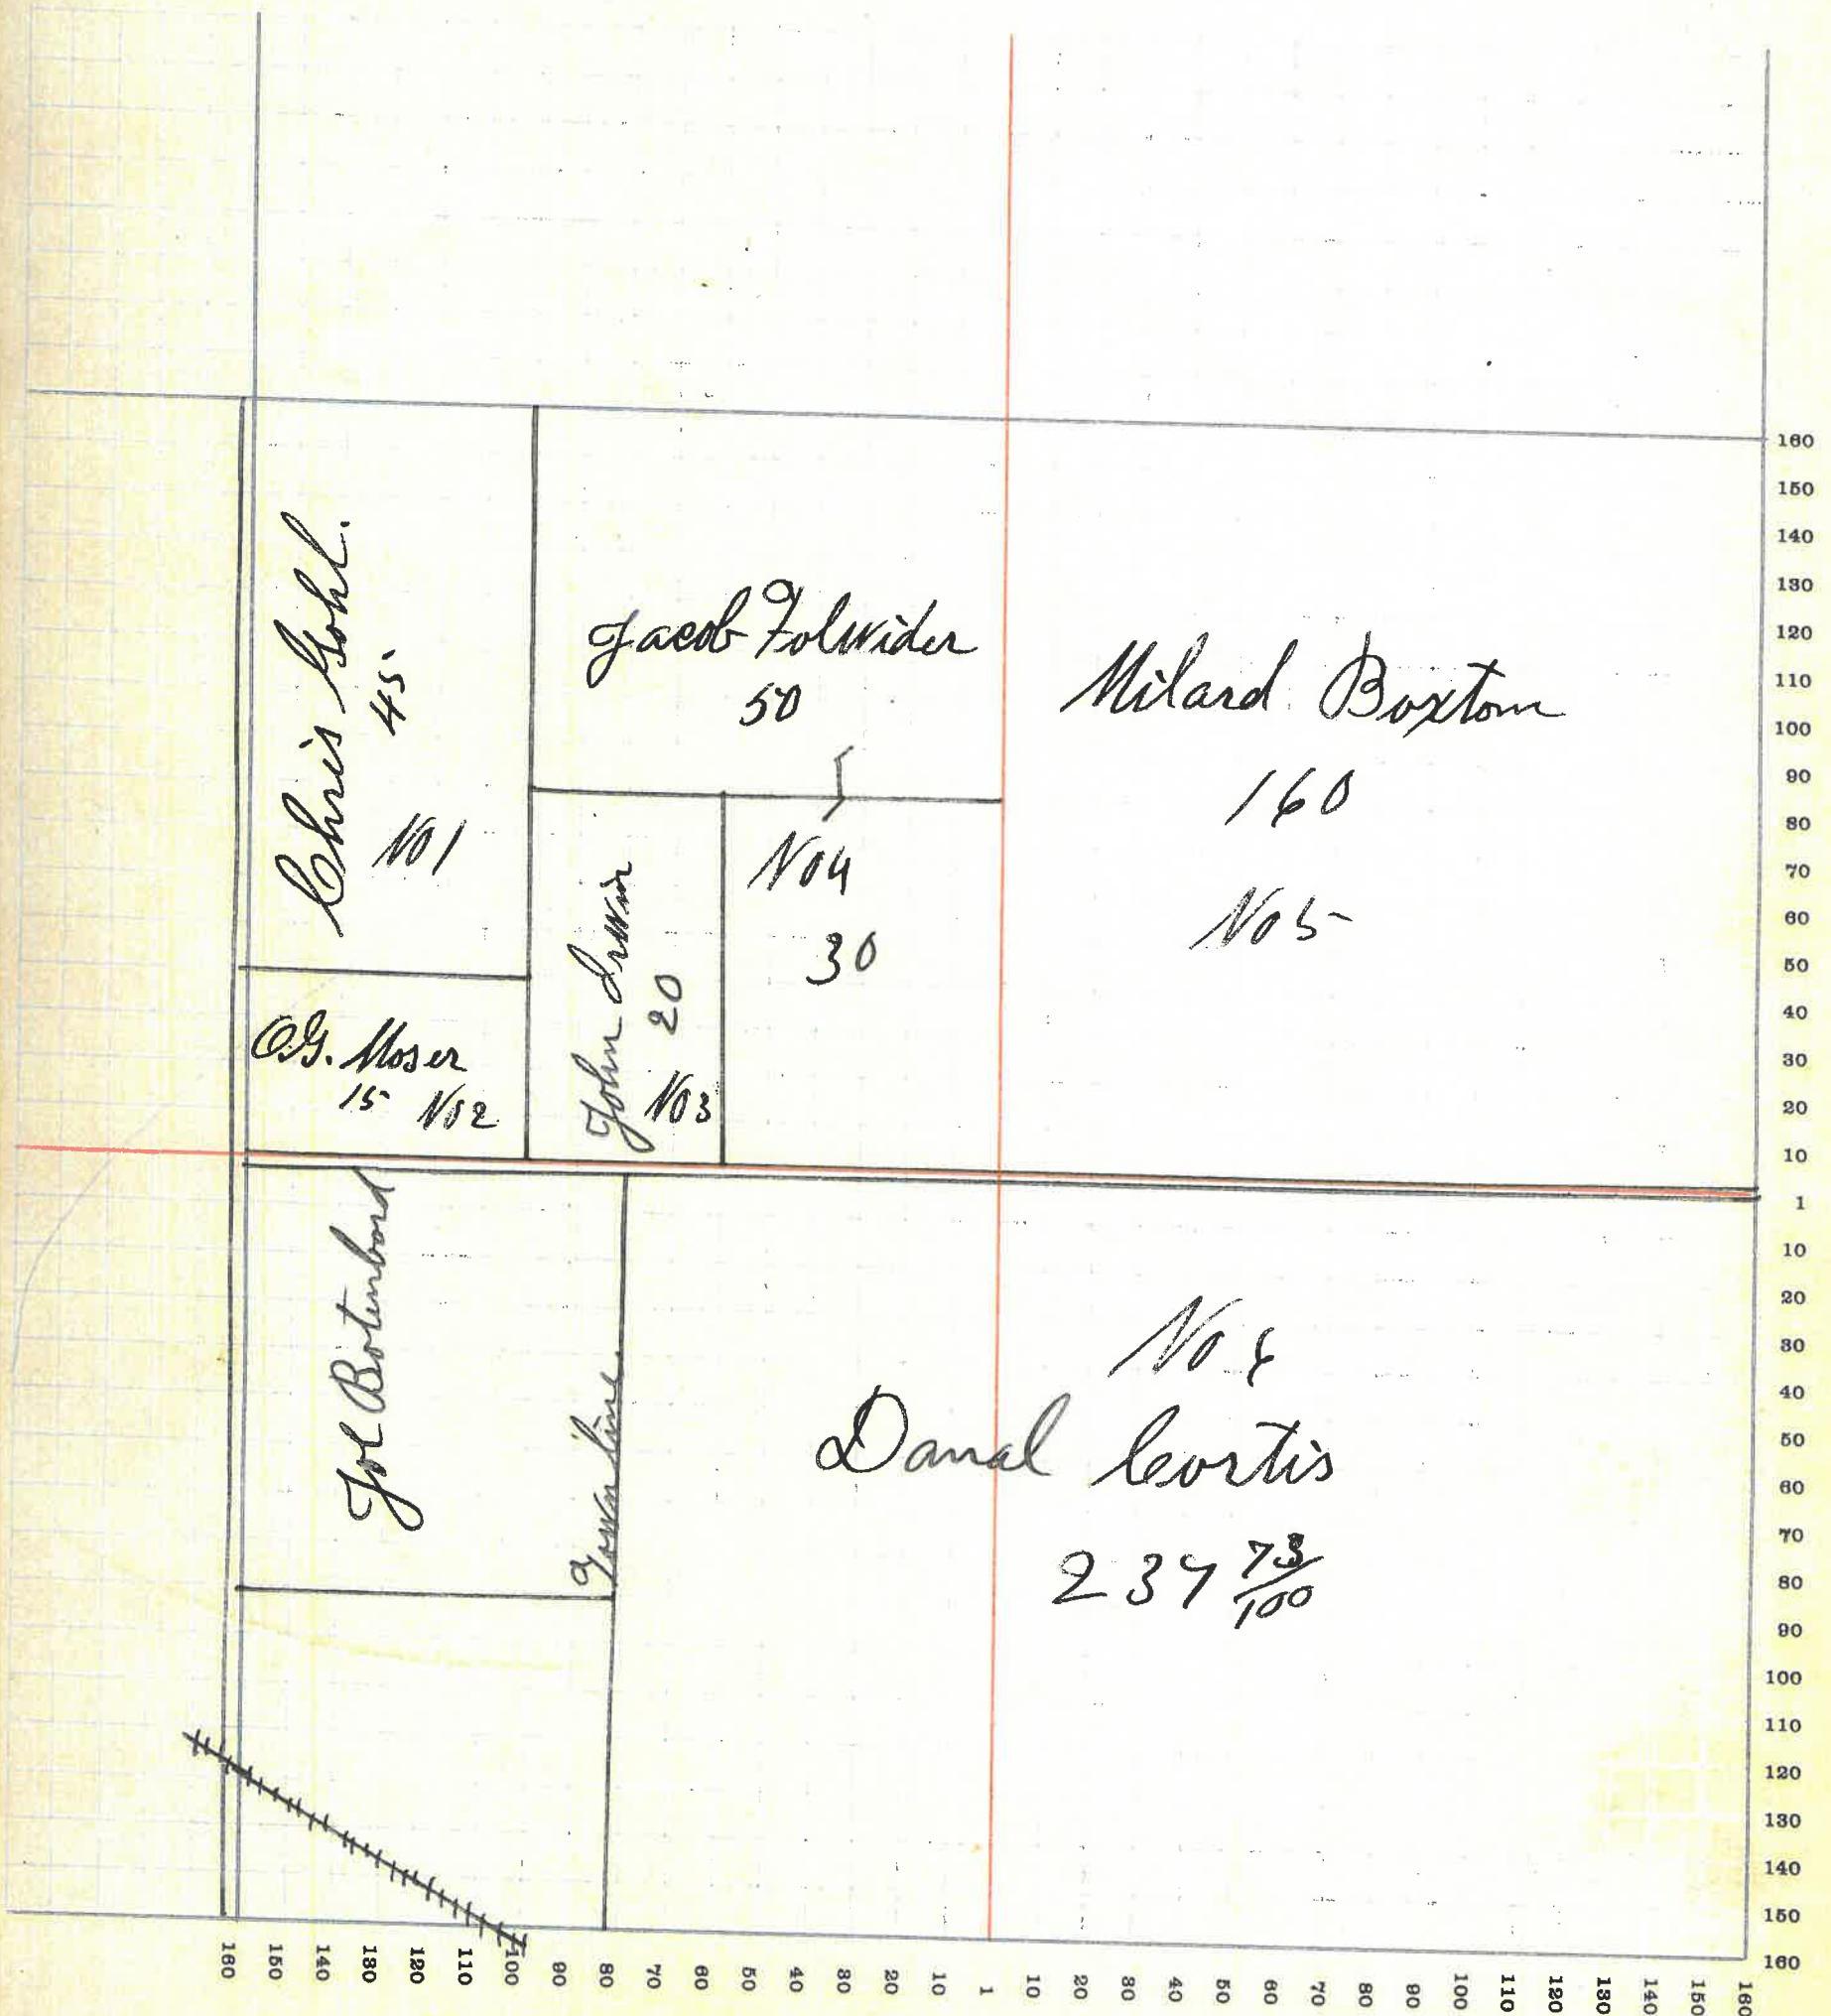 Chris Gohl.
45
No 1
Jacob Folwider
50
Milard Boxtom
160
No 5
No 4
30
John Irwin
20
No 3
O.G. Moser
15 No 2
Joe Botenbord
Town line
No 6
Danal Cortis
237 73/100
160
150
140
130
120
110
100
90
80
70
60
50
40
30
20
10
1
10
20
30
40
50
60
70
80
90
100
110
120
130
140
150
160
160 150 140 130 120 110 100 90 80 70 60 50 40 30 20 10 1 10 20 30 40 50 60 70 80 90 100 110 120 130 140 150 160